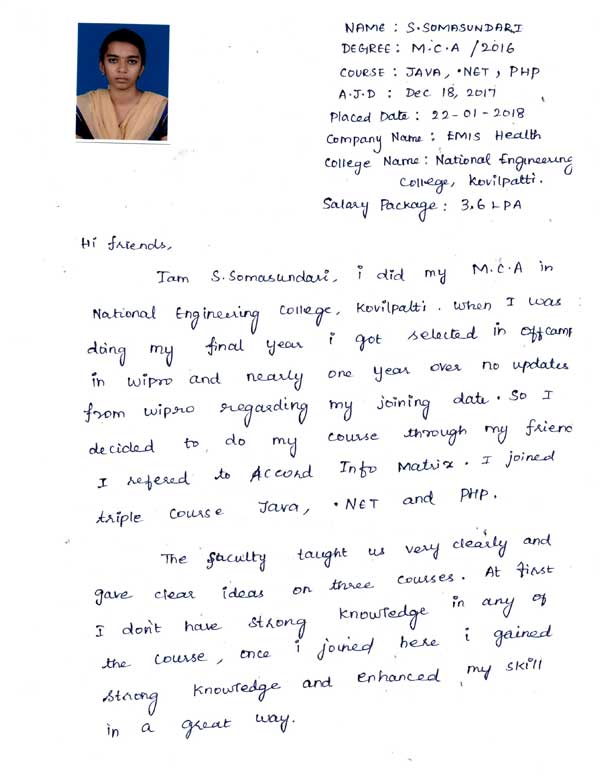 NAME : S.SOMASUNDARI
DEGREE : M.C.A /2016
COURSE : JAVA, .NET, PHP
A.J.D : Dec 18, 2017
Placed Date : 22-01-2018
Company Name : EMIS Health
College Name : National Engineering
College, Kovilpatti.
Salary Package : 3.6 LPA
Hi friends,
Iam S.Somasundari, i did my M.C.A in
National Engineering College, Kovilpatti. When I was
doing my final year i got selected in offcamp
in wipro and nearly one year over no updates
from wipro regarding my joining date. So I
decided to do my course through my frien
I refered to Accord Info Matrix. I joined
triple course Java, .NET and PHP.
The faculty taught us very clearly and
gave clear ideas on three courses. At first
I don't have strong knowledge in any of
the course, once i joined here i gained
strong knowledge and enhanced my skill
in a great way.